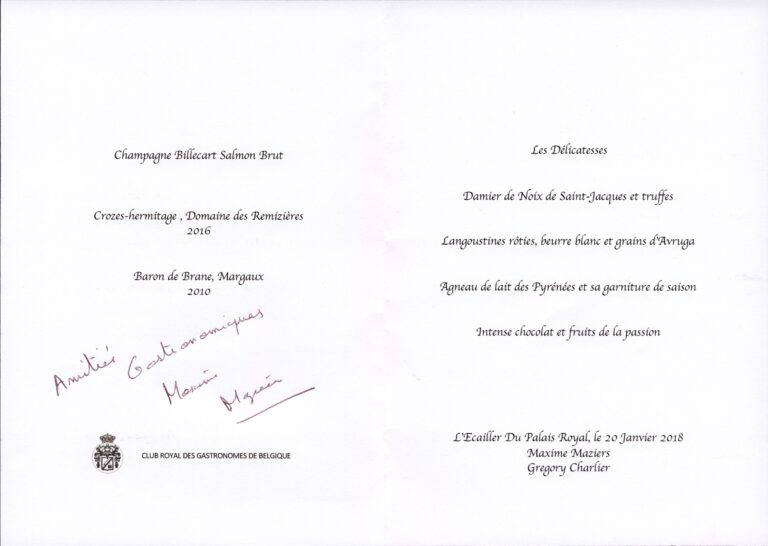 Champagne Billecart Salmon Brut
Crozes-hermitage , Domaine des Remizières
2016
Baron de Brane, Margaux
2010
Amitiés Gastronomiques
Maxime
Maziers
CLUB ROYAL DES GASTRONOMES DE BELGIQUE
Les Délicatesses
Damier de Noix de Saint-Jacques et truffes
Langoustines rôties, beurre blanc et grains d'Avruga
Agneau de lait des Pyrénées et sa garniture de saison
Intense chocolat et fruits de la passion
L'Ecailler Du Palais Royal, le 20 Janvier 2018
Maxime Maziers
Gregory Charlier